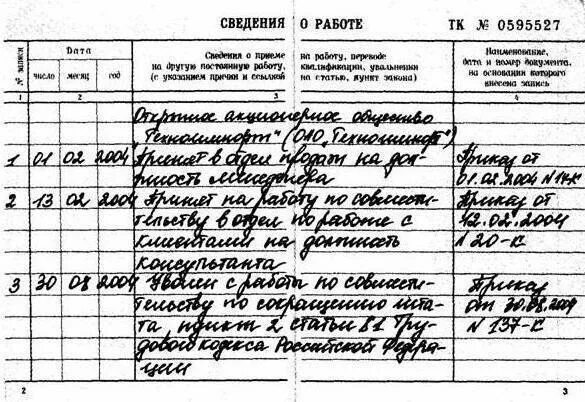 СВЕДЕНИЯ О РАБОТЕ ТК № 0595527
№ записи
Дата
число месяц год
Сведения о приеме на работу, переводе
на другую постоянную работу, квалификации, увольнении
(с указанием причин и ссылкой на статью, пункт закона)
Наименование,
дата и номер документа,
на основании которого
внесена запись
1 2 3 4
Открытое акционерное общество
"Техноимпорт" (ОАО "Техноимпорт")
1 01 02 2004 Принят в отдел продаж на дол- Приказ от
жность менеджера 01.02.2004 N 14-К
2 13 02 2004 Принят на работу по совмести- Приказ от
тельству в отдел по работе с 12.02.2004
клиентами на должность N 20-К
консультанта
3 30 08 2004 Уволен с работы по совмести- Приказ
тельству по сокращению шта- от 30.08.2004
та, пункт 2 статьи 81 Тру- N 137-К
дового кодекса Российской Федера-
ции
2 3